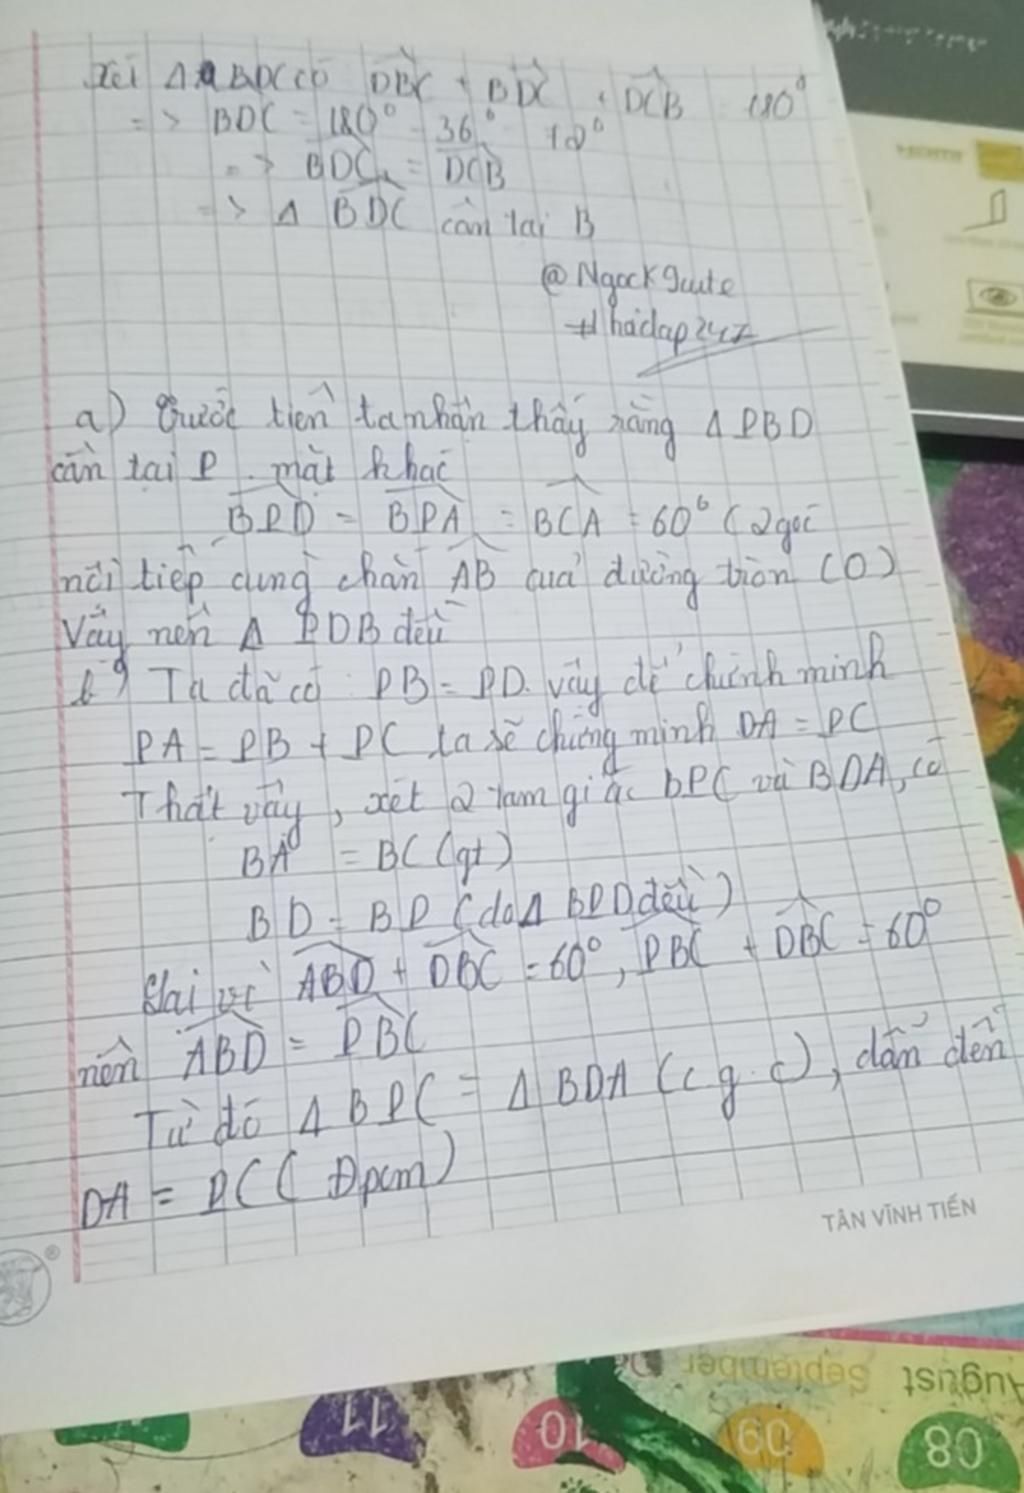 xét Δ BDC có DBC + BDC + DCB 180°
=> BDC = 180° - 36° 72°
=> BDC = DCB
=> Δ BDC cân tại B
@Ngockgute
#hoidap247
a) Trước tiên ta nhận thấy rằng Δ PBD
cân tại P. mặt khác
BPD = BPA = BCA = 60° (2 góc
nội tiếp cùng chắn AB của đường tròn (O)
Vậy nên Δ PDB đều
b) Ta đã có PB = PD. vậy để chứnh minh
PA = PB + PC ta sẽ chứng minh DA = PC
Thật vậy, xét 2 tam giác bPC và BDA, có
BA = BC (gt)
BD = BP (do Δ BPD đều)
Lại vì ABD + DBC = 60°, PBC + DBC = 60°
nên ABD = PBC
Từ đó Δ BPC = Δ BDA (c g.c), dẫn đến
DA = PC (Đpcm)
TÂN VĨNH TIẾN
August September
11 10 09 08